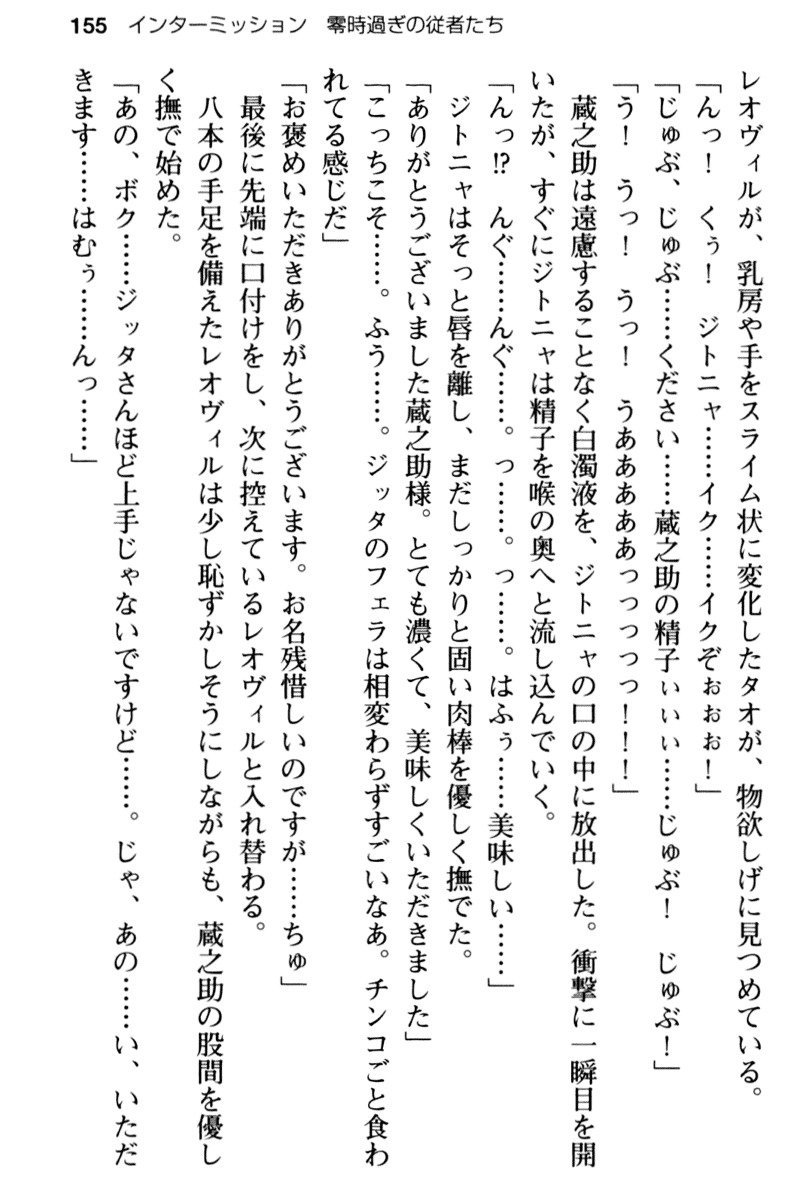 155 インターミッション 零時過ぎの従者たち
レオヴィルが、乳房や手をスライム状に変化したタオが、物欲しげに見つめている。
「んっ！ くぅ！ ジトニャ……イク……イクぞぉぉぉ！」
「じゅぶ、じゅぶ……ください……蔵之助の精子ぃぃぃ……じゅぶ！ じゅぶ！」
「う！ うっ！ うっ！ うあああああっっっっっ！！！」
蔵之助は遠慮することなく白濁液を、ジトニャの口の中に放出した。衝撃に一瞬目を開
いたが、すぐにジトニャは精子を喉の奥へと流し込んでいく。
「んっ!? んぐ……んぐ……。っ……。っ……。はふぅ……美味しい……」
ジトニャはそっと唇を離し、まだしっかりと固い肉棒を優しく撫でた。
「ありがとうございました蔵之助様。とても濃くて、美味しくいただきました」
「こっちこそ……。ふう……。ジッタのフェラは相変わらずすごいなあ。チンコごと食わ
れてる感じだ」
「お褒めいただきありがとうございます。お名残惜しいのですが……ちゅ」
最後に先端に口付けをし、次に控えているレオヴィルと入れ替わる。
八本の手足を備えたレオヴィルは少し恥ずかしそうにしながらも、蔵之助の股間を優し
く撫で始めた。
「あの、ボク……ジッタさんほど上手じゃないですけど……。じゃ、あの……い、いただ
きます……はむぅ……んっ……」